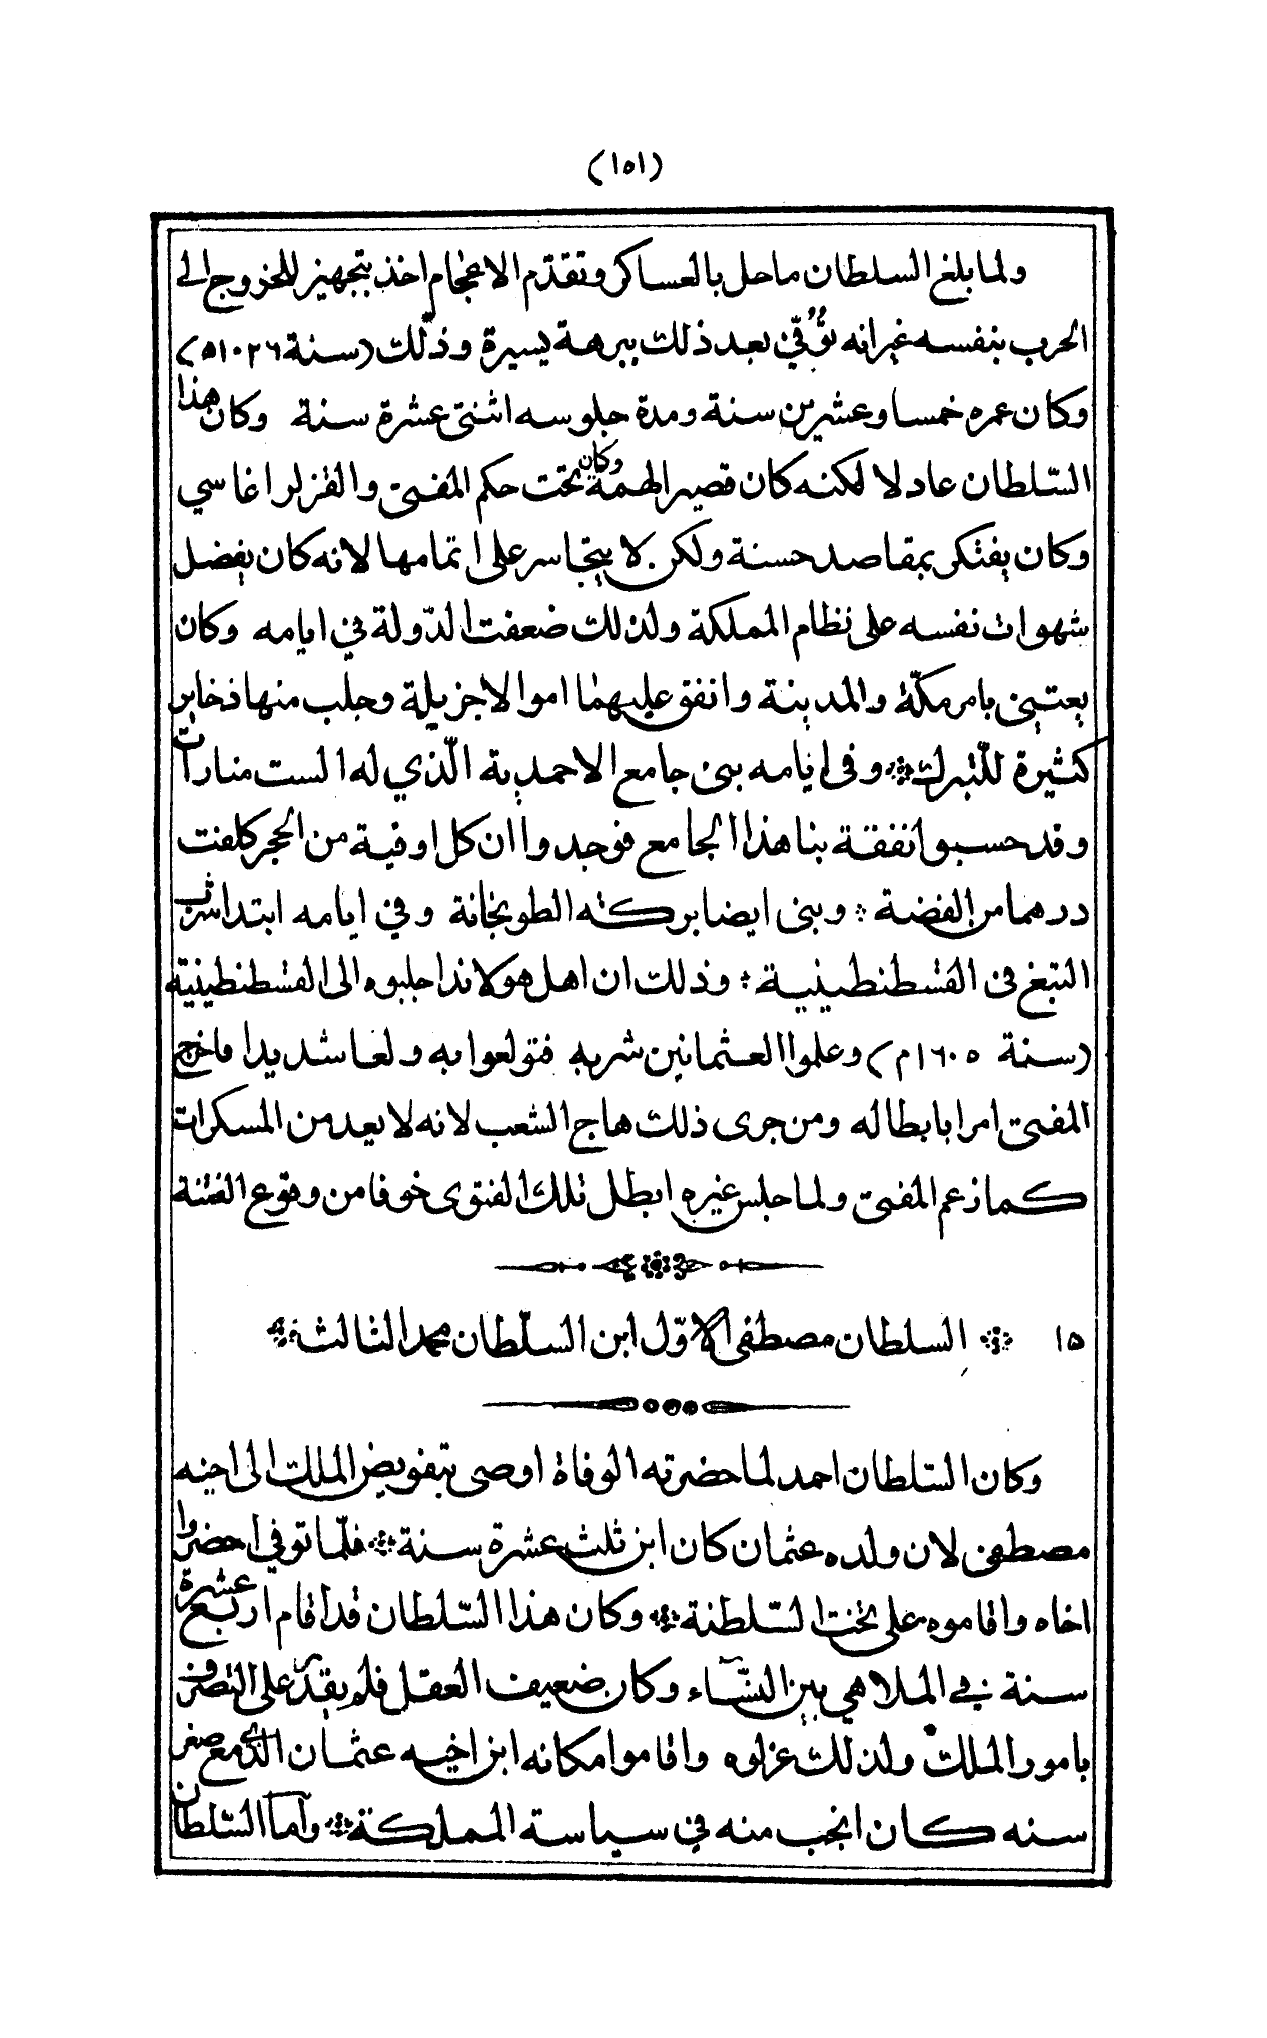 (١٥١)
ولما بلغ السلطان ما حل بالعساكر وتقدّم الاعجام اخذ بتجهيز للخروج الى
الحرب بنفسه غير انه توُفّي بعد ذلك ببرهة يسيرة وذلك (سنة ١٠٢٦ه)
وكان عمره خمسا وعشرين سنة ومدة جلوسه اثنتي عشرة سنة وكان هذا
السّلطان عادلا لكنه كان قصير الهمة وكان تحت حكم المفتي والقزلر اغاسي
وكان يفتكر بمقاصد حسنة ولكن لا يتجاسر على اتمامها لانه كان يفضل
شهوات نفسه على نظام المملكة ولذلك ضعفت الدّولة في ايامه وكان
يعتني بامر مكّة والمدينة وانفق عليهما اموالا جزيلة وجلب منها ذخاير
كثيرة للتبرك ۞ وفي ايامه بنى جامع الاحمدية الّذي له الست منارات
وقد حسبوا نفقة بنا هذا الجامع فوجدوا ان كل اوقية من الحجر كلفت
درهما من الفضة ۞ وبنى ايضا بركته الطوبخانة وفي ايامه ابتدا شرب
التبغ في القسطنطينية ۞ وذلك ان اهل هولاندا جلبوه الى القسطنطينية
(سنة ١٦٠٥م) وعلموا العثمانين شربه فتولعوا به ولعا شديدا فاخرج
المفتي امرا بابطاله ومن جرى ذلك هاج الشعب لانه لا يعد من المسكرات
كما زعم المفتي ولما جلس غيره ابطل تلك الفتوى خوفا من وقوع الفتنة
١٥ ۞ السلطان مصطفى الاوّل ابن السلّطان محمد الثالث ۞
وكان السّلطان احمد لما حضرته الوفاة اوصى بتفويض الملك الى اخيه
مصطفى لان ولده عثمان كان ابن ثلث عشرة سنة ۞ فلمّا توفي احضروا
اخاه واقاموه على تخت السّلطنة ۞ وكان هذا السّلطان قد اقام اربع عشرة
سنة في الملاهي بين النسّاء وكان ضعيف العقل فلم يقدر على التصرف
بامور الملك ولذلك عزلوه واقاموا مكانه ابن اخيه عثمان الذي مع صغر
سنه كان انجب منه في سياسة المملكة ۞ وأما السّلطان